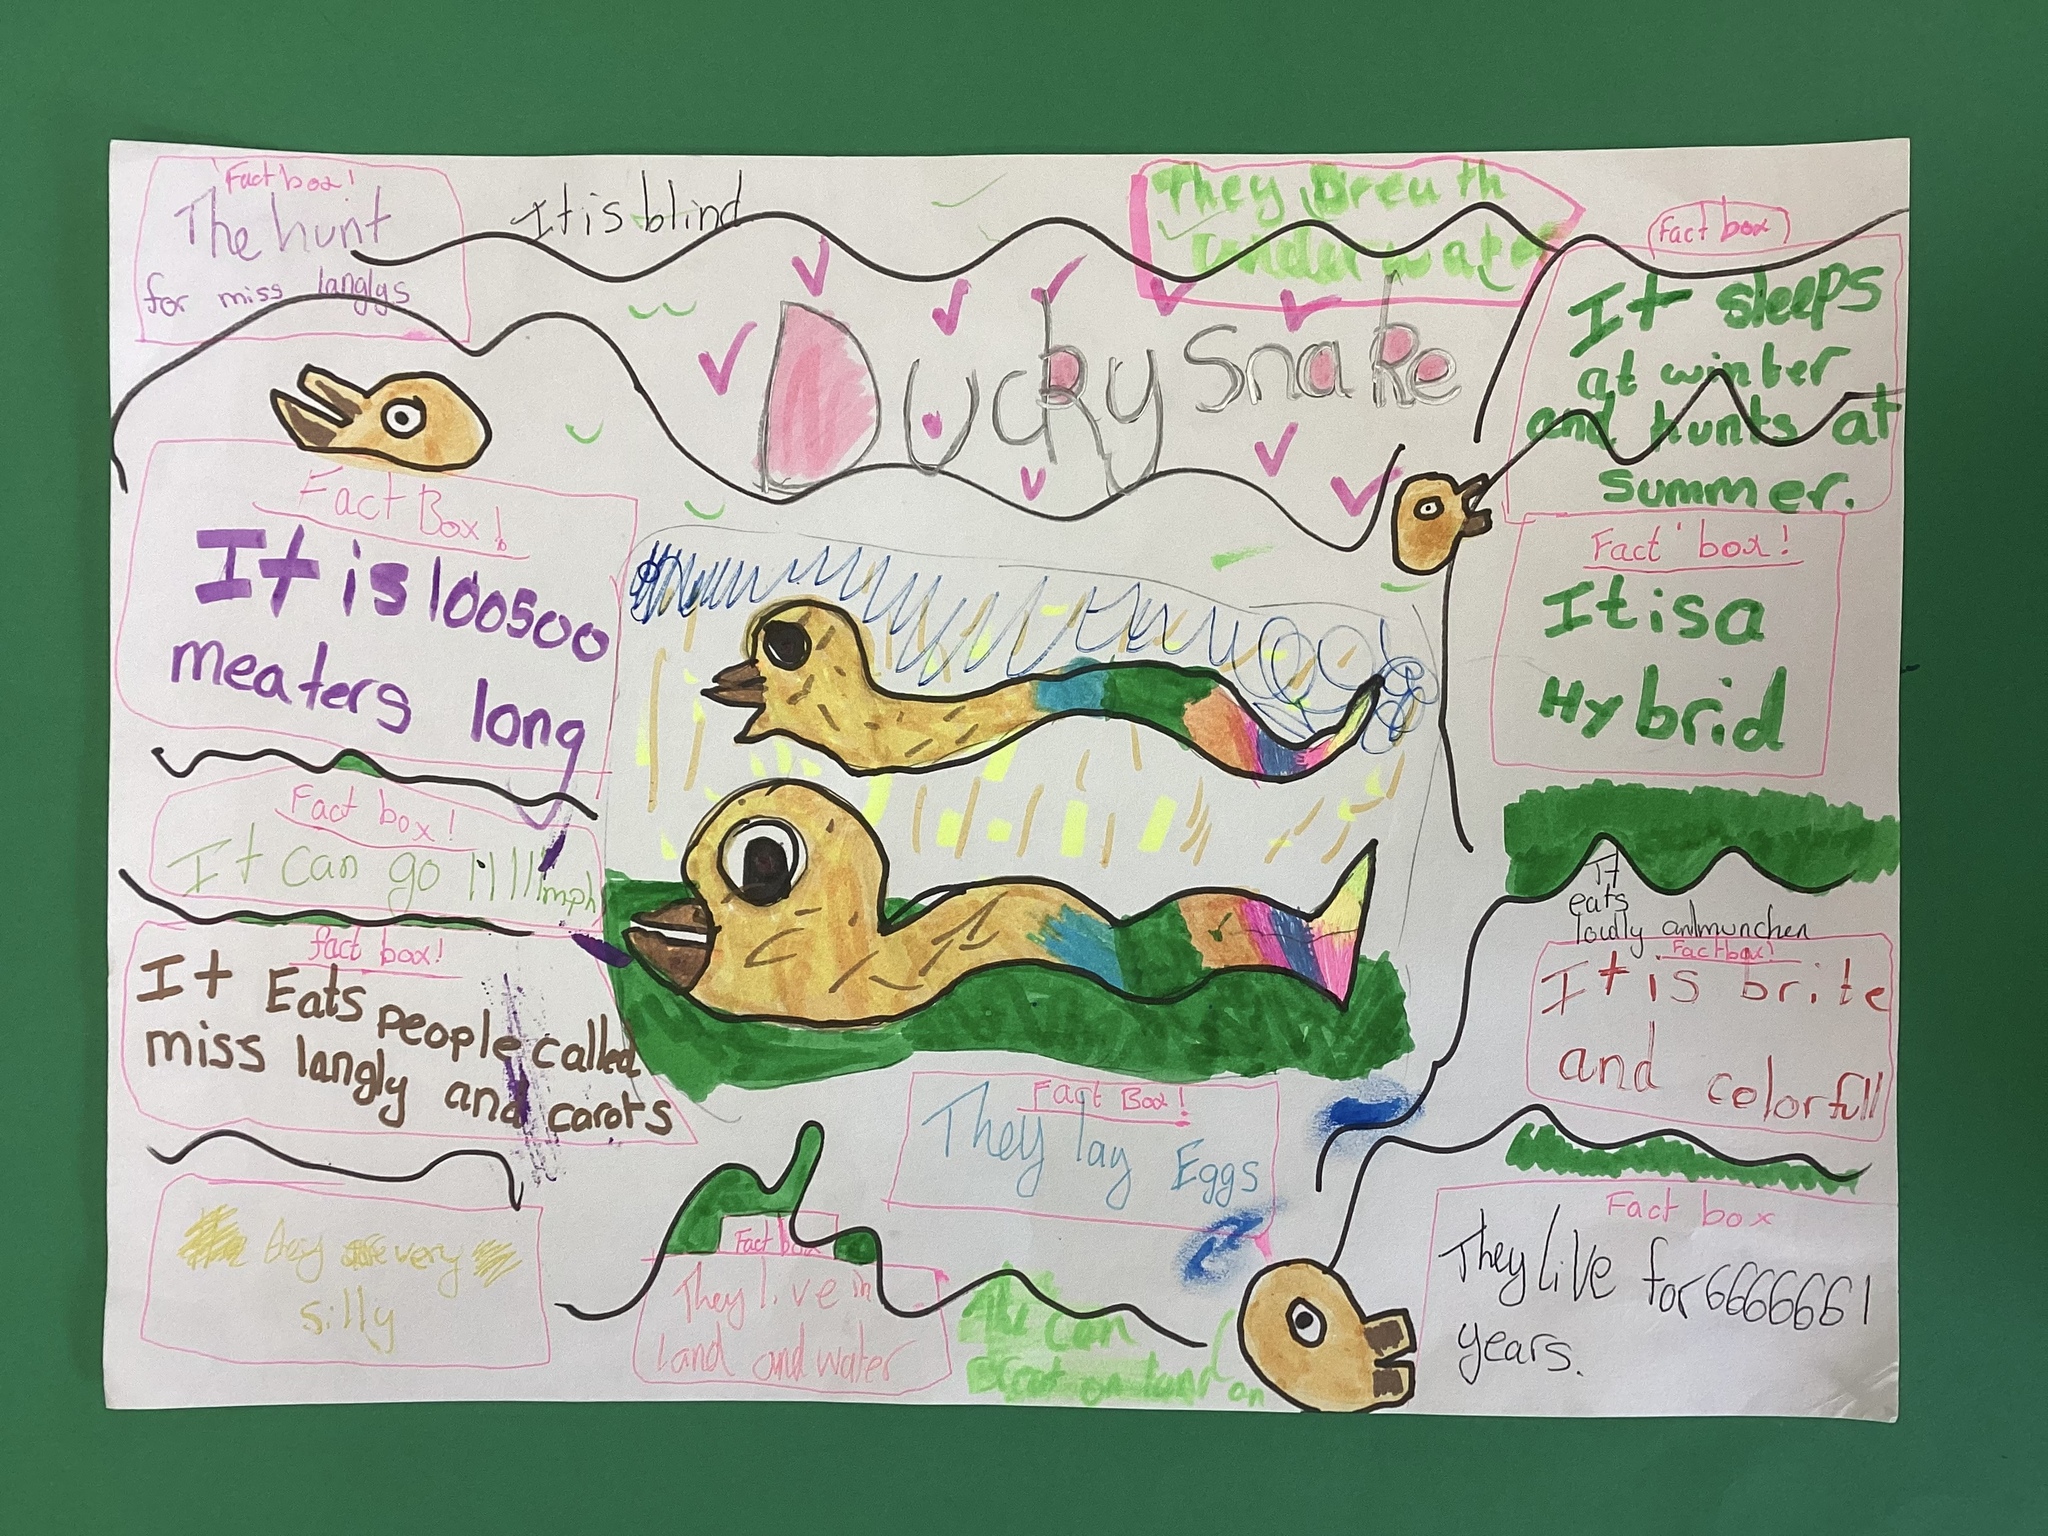 Fact box!
The hunt
for miss langlys
It is blind
They Breuth
underwater
Fact box
It sleeps
at winter
and hunts at
summer.
Ducky Snake
Fact Box!
It is 100500
meaters long
Fact box!
It is a
Hybrid
Fact box!
It can go 11111mph
fact box!
It Eats people called
miss langly and carots
It
eats
loudly and munchen
Fact box!
It is brite
and colorfull
Fact Box!
They lay Eggs
very
silly
Fact box
They live in
land and water
can
on land an
Fact box
They live for 66666661
years.